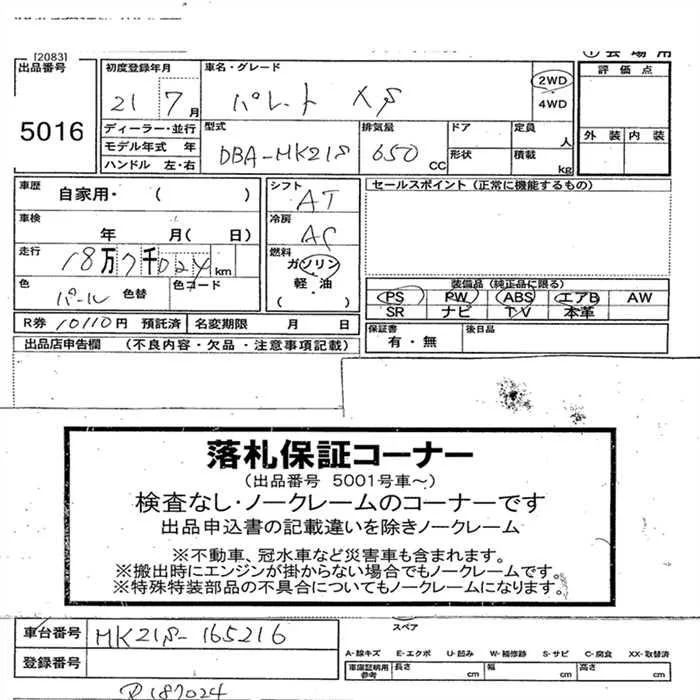 [2083]
出品番号 初度登録年月 車名・グレード ① 会 場 用
21 7月 パレート XS 2WD 評 価 点
4WD
5016 ディーラー・並行 型式 排気量 ドア 定員 人 外 装 内 装
モデル年式 年 DBA-MK21S 650 CC 形状 積載 kg
ハンドル 左・右
車歴 自家用・ ( ) シフト AT セールスポイント (正常に機能するもの)
車検 年 月( 日) 冷房 AC
走行 18万7千024km 燃料 ガソリン
軽・油
( ・ )
色 パール 色替 色コード
装備品 (純正品に限る)
PS PW ABS エアB AW
SR ナビ TV 本革
R券 10110円 預託済 名変期限 月 日 保証書 有・無 後日品
出品店申告欄 (不良内容・欠品・注意事項記載)
落札保証コーナー
(出品番号 5001号車~)
検査なし・ノークレームのコーナーです
出品申込書の記載違いを除きノークレーム
※不動車、冠水車など災害車も含まれます。
※搬出時にエンジンが掛からない場合でもノークレームです。
※特殊特装部品の不具合についてもノークレームになります。
車台番号 MK21S-165216 スペア
登録番号 A-線キズ E-エクボ U-凹み W-補修跡 S-サビ C-腐食 XX-取替済
車庫証明用参考 長さ cm 幅 cm 高さ cm
187024